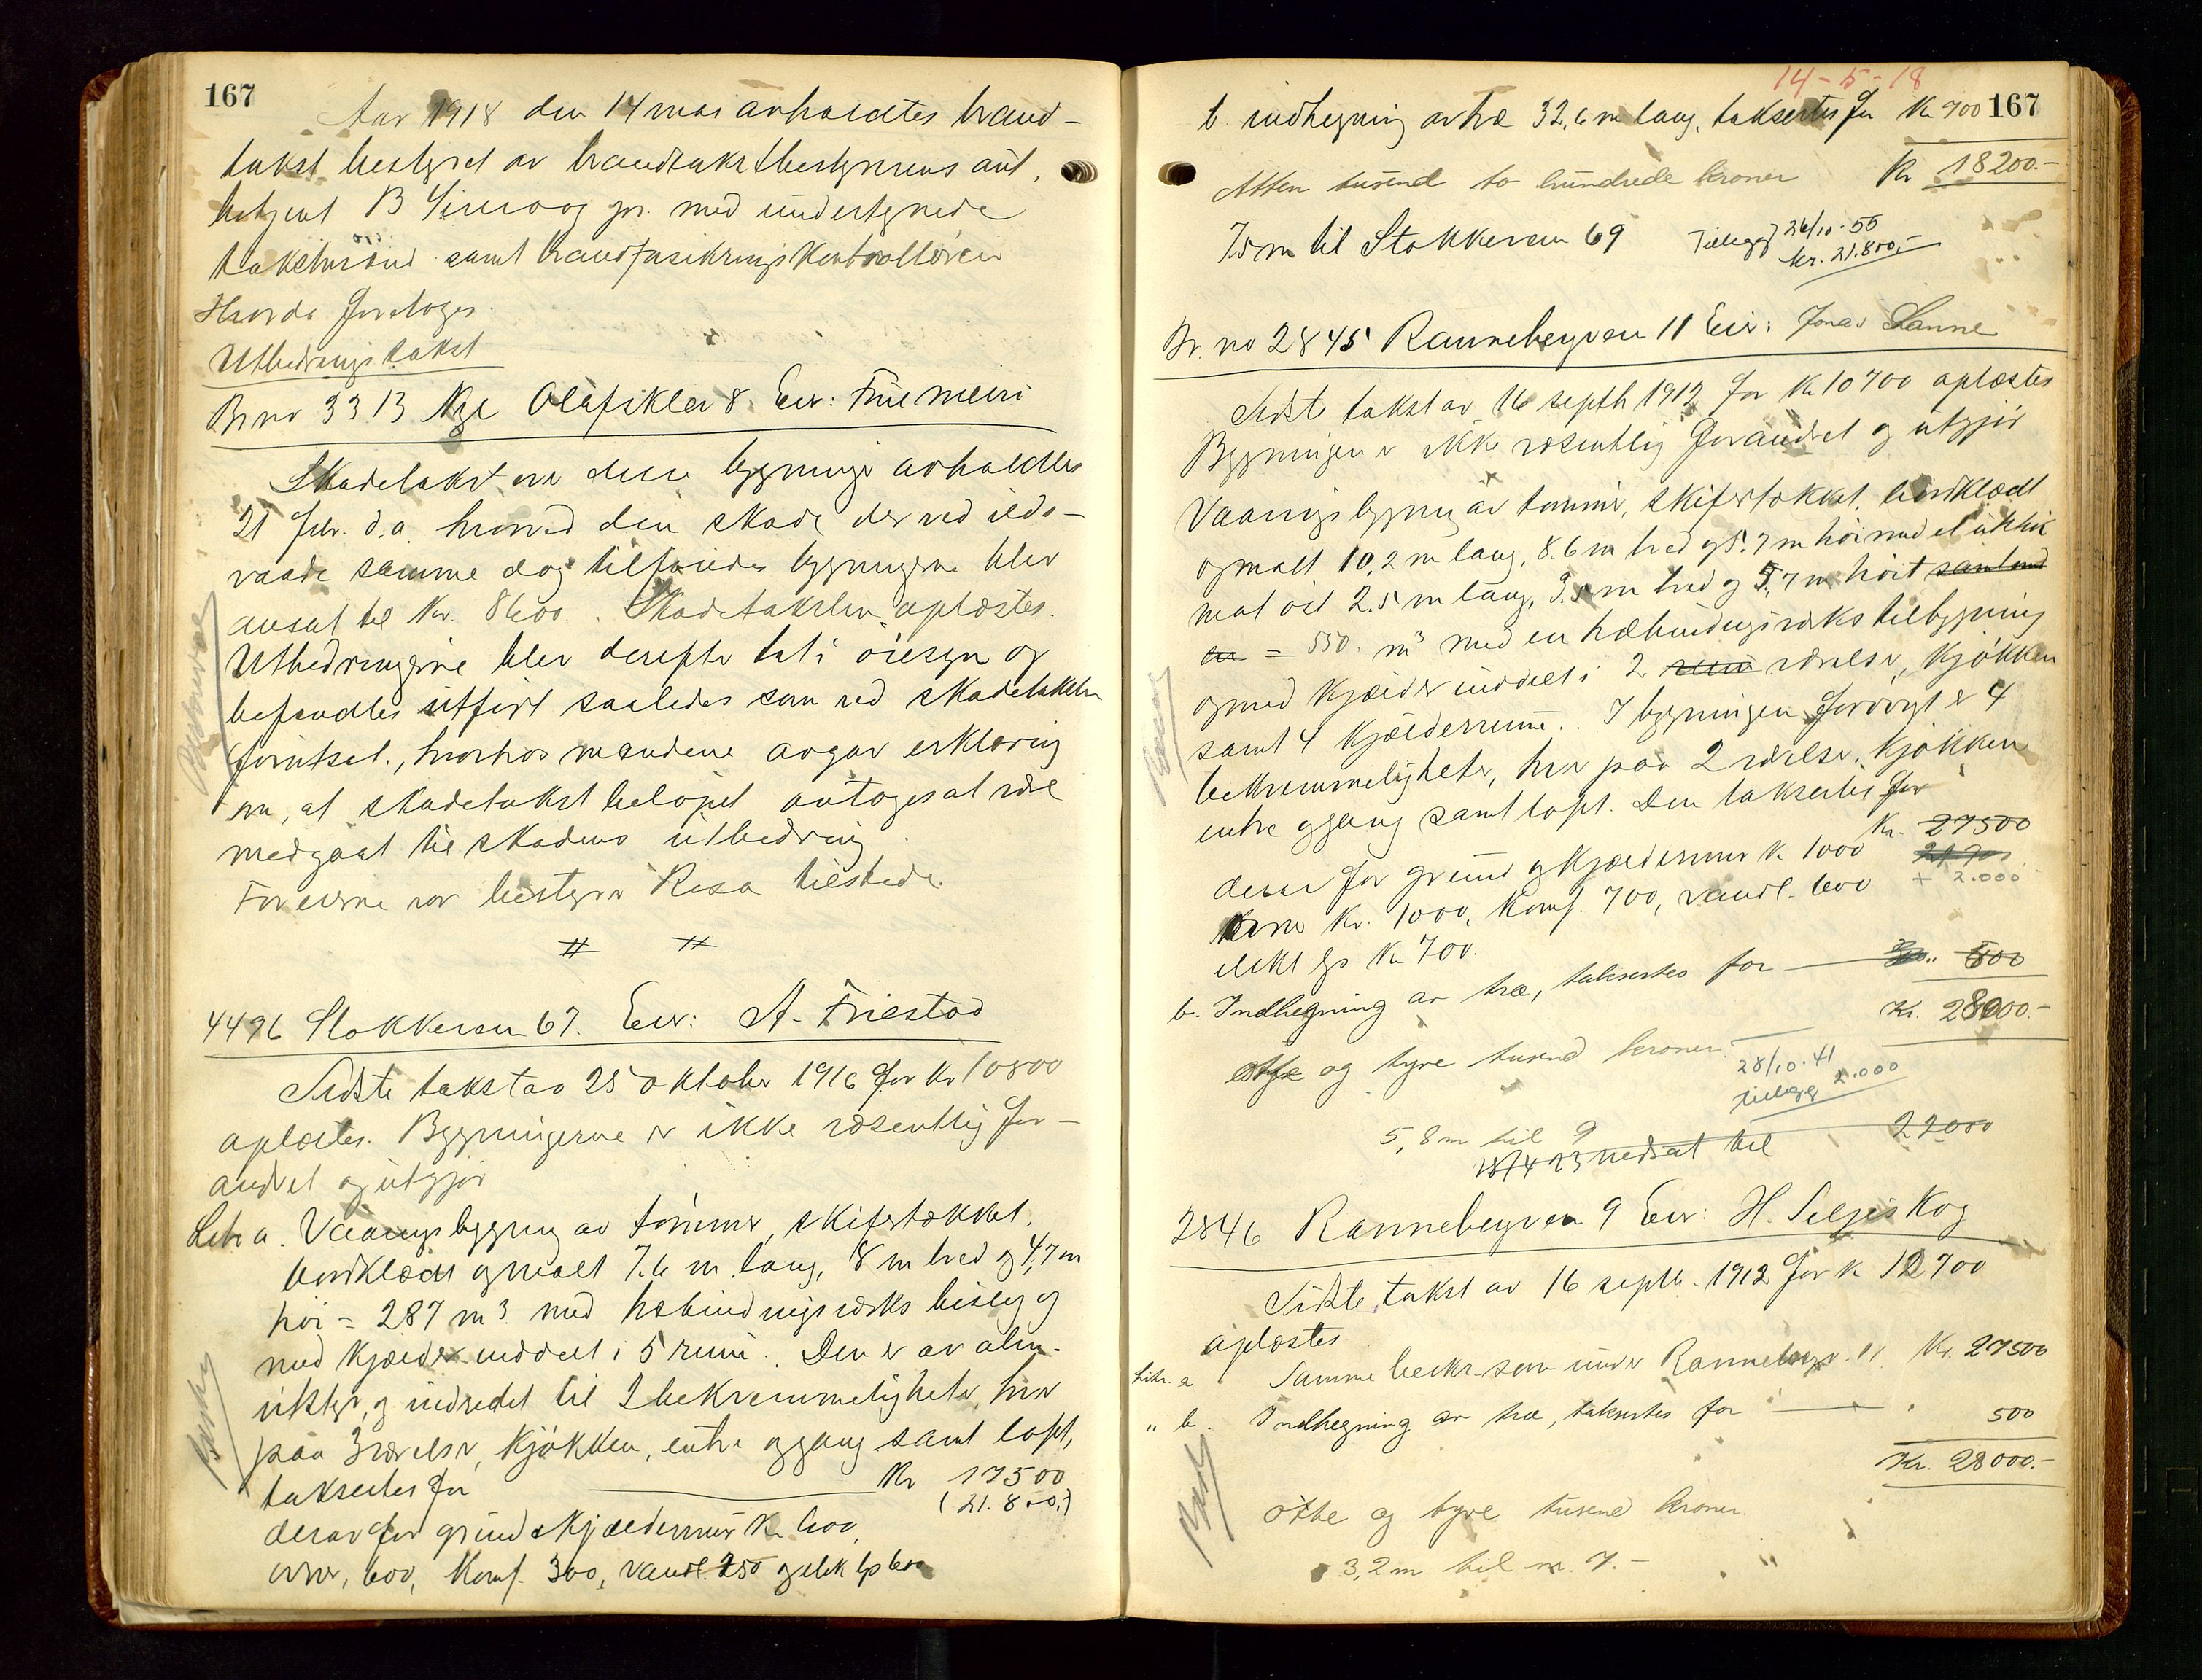 167
Aar 1918 den 14 mai avholdtes brand-
takst bestyret av brandtakstbestyrerens aut.
betjent B jr. med undertegnede
takstmænd samt brandforsikringskontrolløren
foretoges
Utbedringstakst
Br no 3313 Nye Olafskler 8. Eier: Frue
Skadetakst over disse bygninger avholdtes
21 febr. d.a. hvorved den skade der ved ilds-
vaade samme dag tilføiedes bygningerne blev
ansat til Kr. 8600. Skadetaksten oplæstes.
Utbedringerne blev derefter tat i øiesyn og
befandtes utført saaledes som ved skadetaksten
forutsat, hvorhos mændene avgav erklæring
om, at skadetakstbeløpet antoges at være
medgaat til skadens utbedring.
For eierne var bestyrer Rosa tilstede.
# #
4496 Stokkeveien 67. Eier: A. Friestad
Sidste takst av 25 oktober 1916 for Kr 10800
oplæstes. Bygningerne er ikke væsentlig for-
andret og utgjør
Litr a. Vaaningsbygning av tømmer, skifertækket,
bordklædt og malt 7.6 m lang, 8 m bred og 4,7 m
høi = 287 m3 med træbindingsverks bislag og
med kjælder inddelt i 5 rum. Den er av alm.
utstyr, og indredet til 2 bekvemmeligheter, hver
paa 3 værelser, kjøkken, entre og gang samt loft,
taksertes for Kr 17500
(21.800,)
derav for grund & kjældermur Kr. 600,
ovner, 600, Komf. 300, vandl. 250 og elek lys 600
14-5-18
b. indhegning av træ 32,6 m lang, taksertes for Kr 700 167
Kr 18200.-
Atten tusend to hundrede kroner
7.5 m til Stokkeveien 69 Tillegg 26/10-55
kr. 21.800,-
Br. no 2845 Rannebergveien 11 Eier: Jonas Sanne
Sidste takst av 16 septb 1912 for Kr 10700 oplæstes
Bygningen er ikke væsentlig forandret og utgjør
Vaaningsbygning av tømmer, skifertækket, bordklædt
og malt 10,2 m lang, 8.6 m bred og 5.7 m høi med et utstik
mot øst 2.5 m lang, 3.5 m bred og 5,7 m høit samt med
en = 550. m3 med en træbindingsverks tilbygning
og med kjælder inddelt i 2 rum værelser, kjøkken
samt 4 kjælderrum. I bygningen forøvrigt er 4
bekvemmeligheter, hver paa 2 værelser, kjøkken
entre og gang samt loft. Den taksertes for
Kr. 27500
derav for grund og kjældermur Kr. 1000
+ 2.000
ovne Kr. 1000, Komf. 700, vandl. 600
elekt lys Kr 700.
b. Indhegning av træ, taksertes for 500
Kr. 28000.-
otte og tyve tusend kroner.
28/10-41
tillegg 2.000
5,8 m til 9
18/4 23 nedsat til 22000
2846 Rannebergveien 9 Eier: H. Seljeskog
Sidste takst av 16 septb. 1912 for Kr 12700
oplæstes
Litr. a Samme beskr. som under Rannebergv. 11. Kr. 27500
" b. Indhegning av træ, taksertes for 500
Kr. 28000.-
otte og tyve tusend kroner.
3,2 m til nr. 7.-